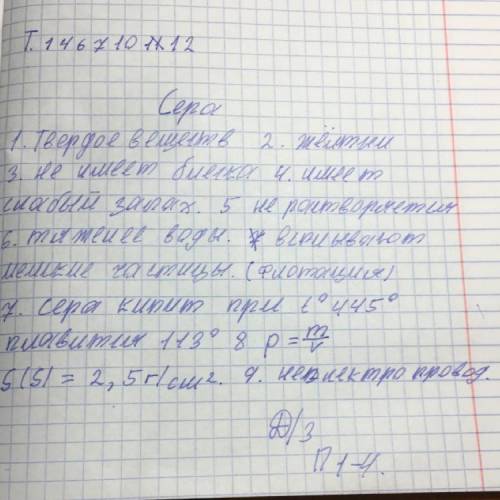 Т. 1 4 6 7 10 11 12
Сера
1. Твердое веществ 2. жёлтый
3. не имеет блеска 4. имеет
слабый запах. 5 не растворяется
6. тяжелее воды. всплывают
мелкие частицы. (флотация)
7. сера кипит при t° 445°
плавится 113° 8 p = m/v
S(S) = 2,5 г/см2. 9. неэлектропровод.
Д/з
П 1-4.